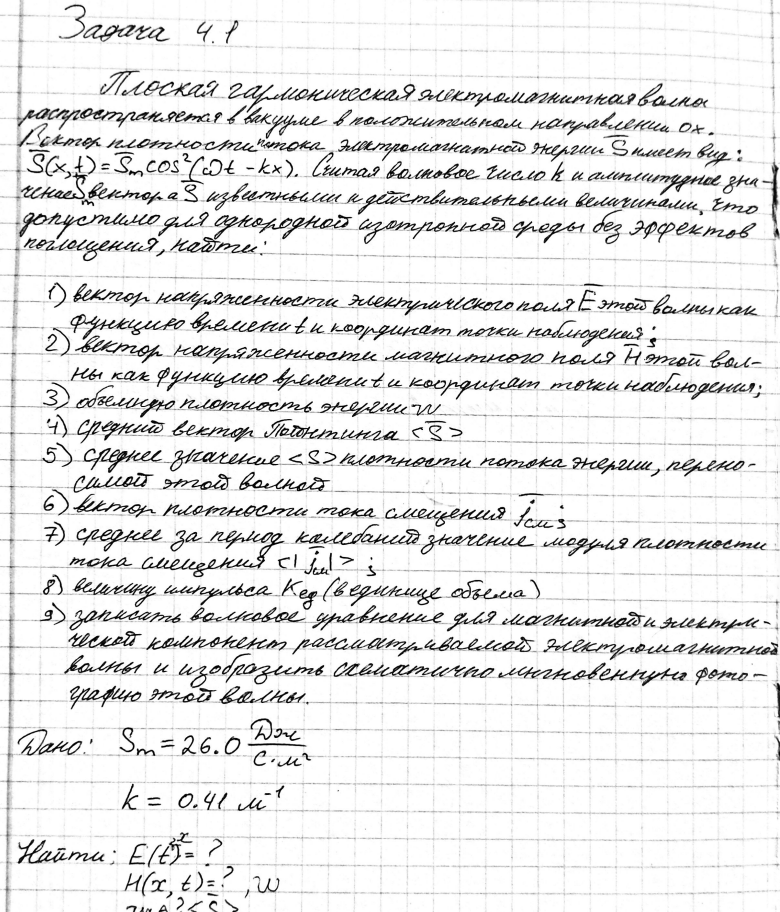 Задача 4.1
Плоская гармоническая электромагнитная волна
распространяется в вакууме в положительном направлении ox.
Вектор плотности потока электромагнитной энергии S̄ имеет вид:
S̄(x,t) = S̄m cos²(ωt - kx). Считая волновое число k и амплитудное зна-
чение S̄m вектора S̄ известными и действительными величинами, что
допустимо для однородной изотропной среды без эффектов
поглощения, найти:
1) вектор напряженности электрического поля Ē этой волны как
функцию времени t и координат точки наблюдения;
2) вектор напряженности магнитного поля H̄ этой вол-
ны как функцию времени t и координат точки наблюдения;
3) объемную плотность энергии w
4) средний вектор Пойнтинга <S̄>
5) среднее значение <S> плотности потока энергии, перено-
симой этой волной
6) вектор плотности тока смещения j̄см;
7) среднее за период колебаний значение модуля плотности
тока смещения <|j̄см|>;
8) величину импульса Kед (в единице объема)
9) записать волновое уравнение для магнитной и электри-
ческой компонент рассматриваемой электромагнитной
волны и изобразить схематично мгновенную фото-
графию этой волны.
Дано: Sm = 26.0 Дж/с·м²
k = 0.41 м⁻¹
Найти: E(t,x) = ?
H(x, t) = ?, w